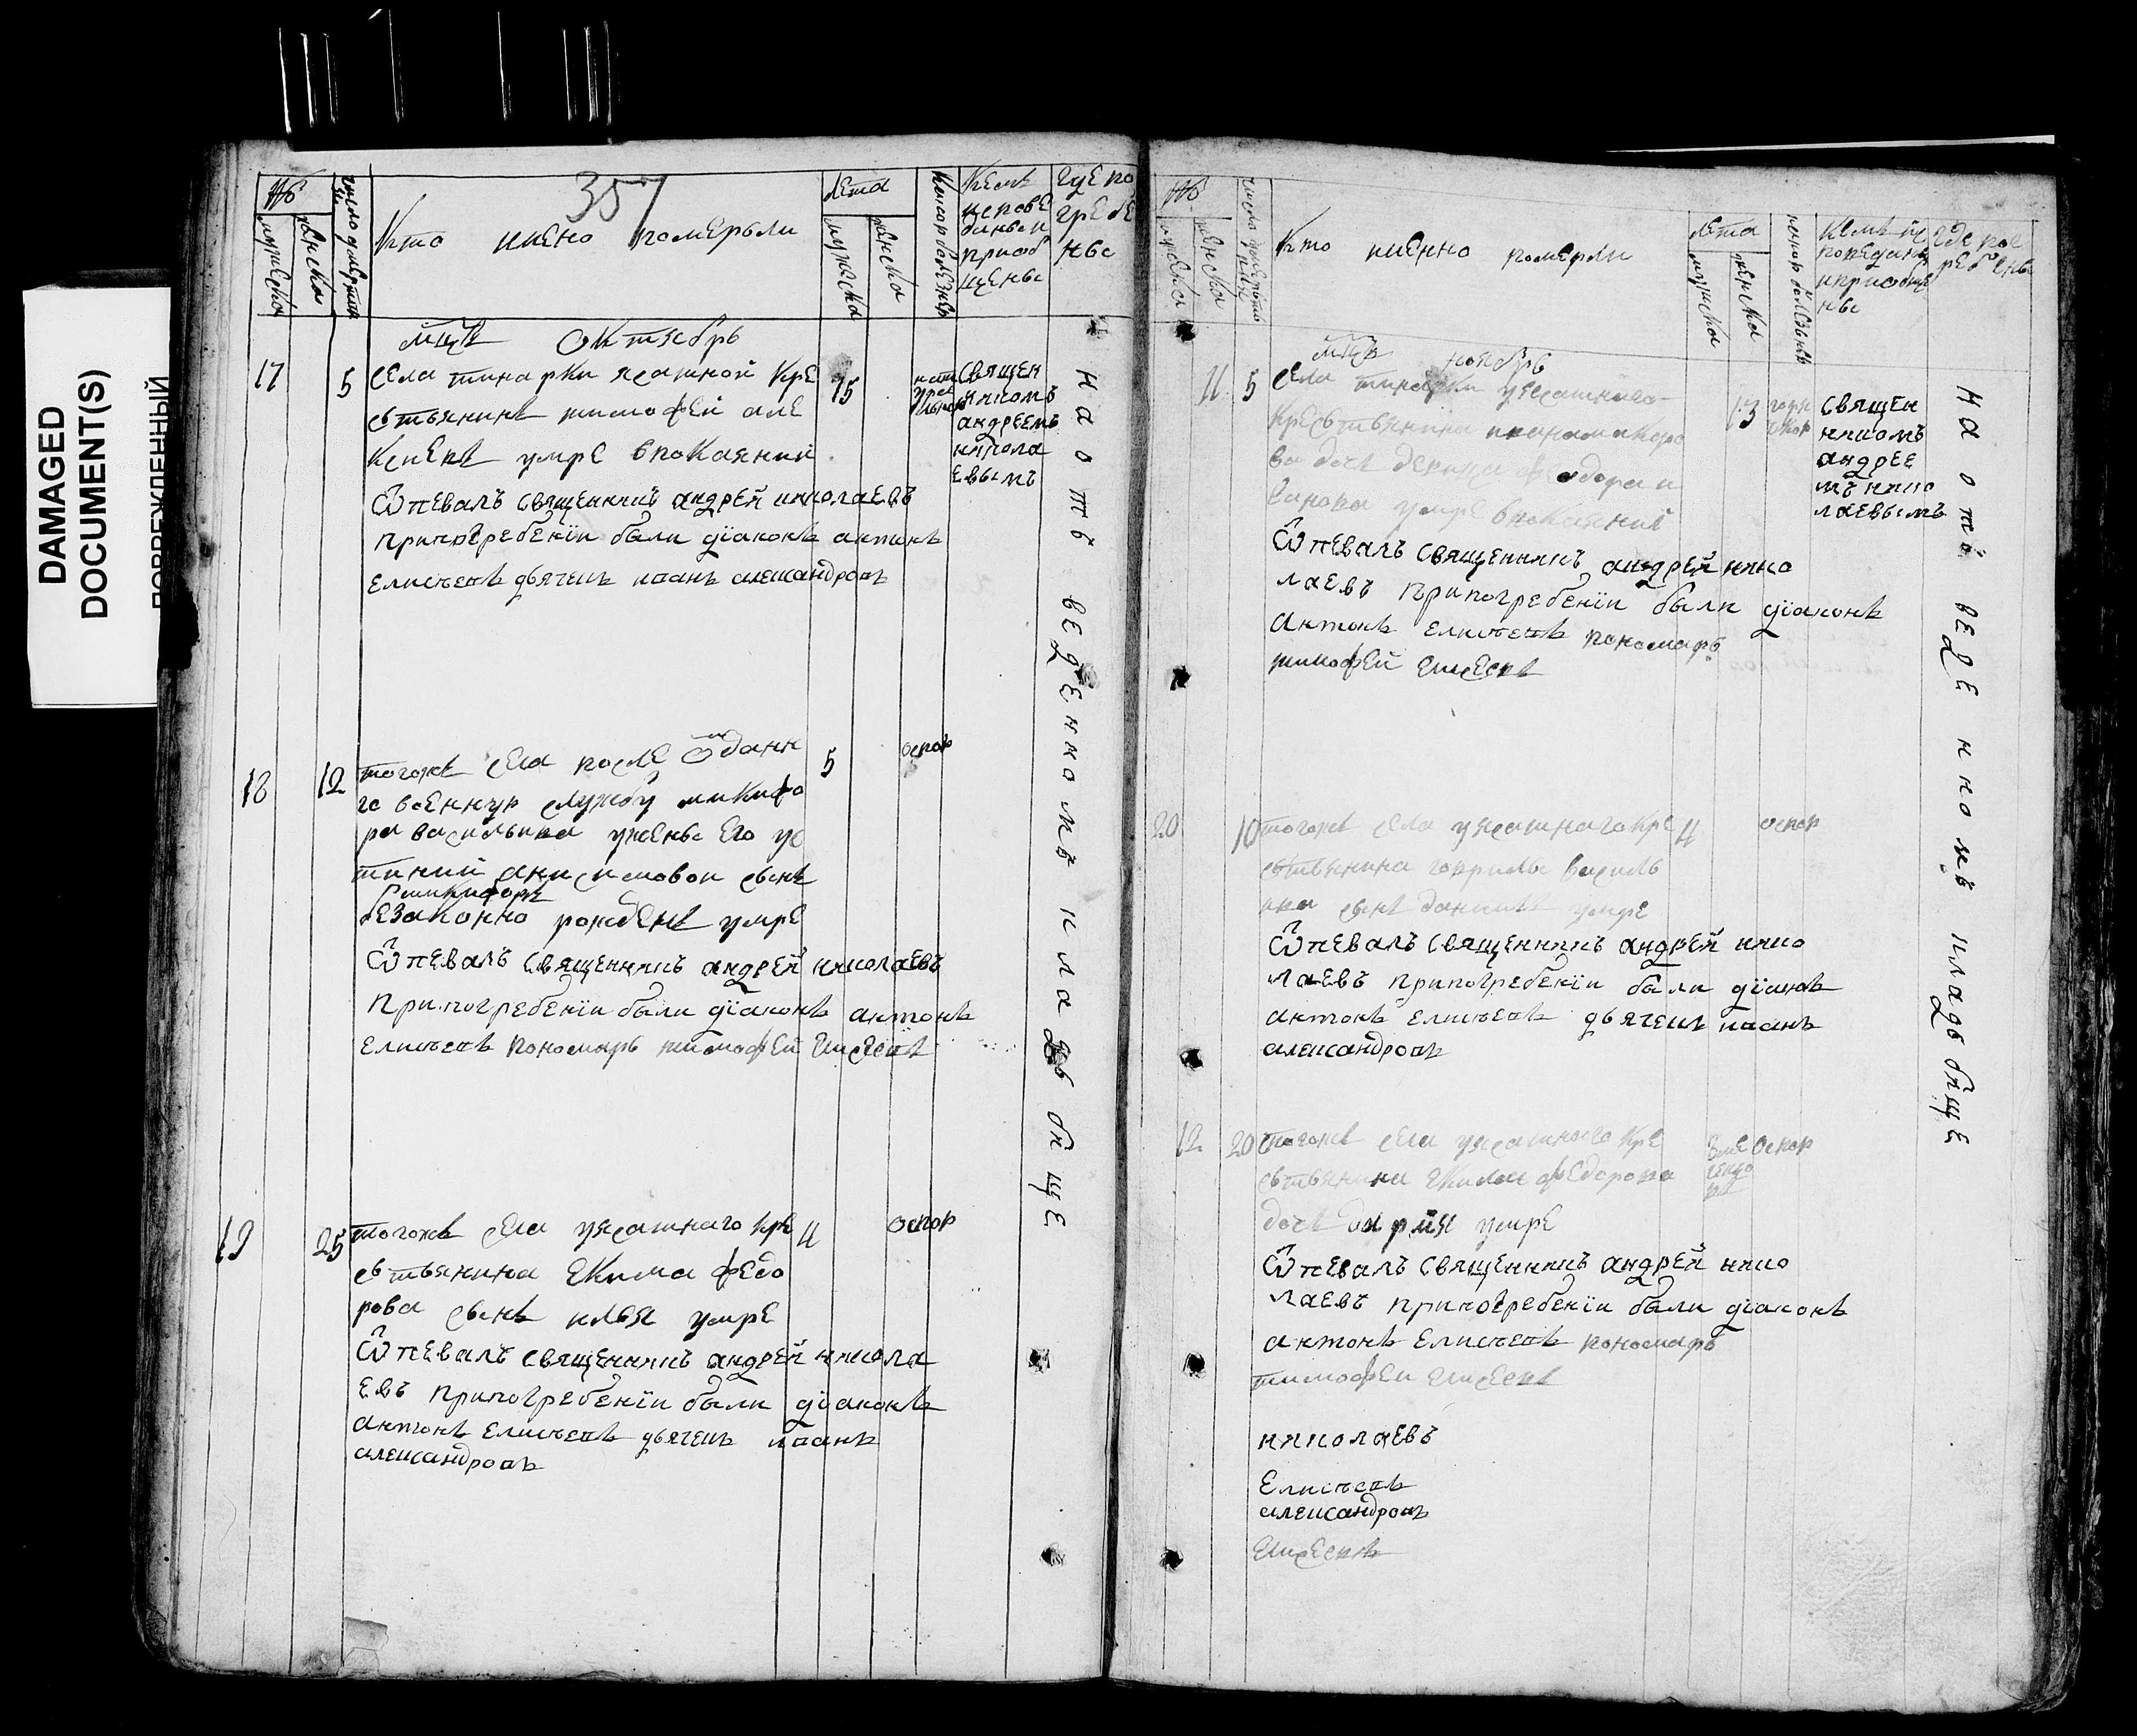 DAMAGED
DOCUMENT(S)
ПОВРЕЖДЕННЫЙ
357
№
мужеска
женска
число умертвия
Кто имено померьли
лета
мужеска
женска
какою болезнью
Кемъ
испове
даны и
приоб
щены
где по
гребе
ны
мцъ Октябрь
17 5 села тинарки ясашной Кре 75
стьянинъ тимофей але
ксеевъ умре впокаянии
Ѿпевалъ священникъ андрей николаевъ
припогребении были диаконъ антонъ
елисеевъ дьячекъ иванъ александровъ
священ
никомъ
андреемъ
никола
евымъ
18 12 тогожъ села после ѿданн 5 оспою
го военную службу никифо
ра васильева ужены его ус
тинии анисимовой сынъ
никифоръ
безаконно рожденъ умре
Ѿпевалъ священникъ андрей николаевъ
припогребении были диаконъ антонъ
елисеевъ пономарь тимофей
19 25 тогожъ села уясашнаго кре 4 оспою
стьянина Екима федо
рова сынъ илья умре
Ѿпевалъ священникъ андрей никола
евъ припогребении были диаконъ
антонъ елисеевъ дьячекъ иванъ
александровъ
на отьведенномъ кладьбище
№
мужеска
женска
число умертвия
Кто имено померли
лета
мужеска
женска
какою болезнью
кемъ ис
поведаны
и приобще
ны
где пог
ребены
мцъ ноябрь
11 5 села тинарки уясашнаго
крестьянина
ва дочь девица федора и
ванова умре впокаянии
Ѿпевалъ священникъ андрей нико
лаевъ припогребении были диаконъ
антонъ елисеевъ пономарь
тимофей
13
священ
никомъ
андрее
мъ нико
лаевымъ
20 10 тогожъ села уясашнаго кре 4 оспою
стьянина гаврилы василь
ева сынъ даниилъ умре
Ѿпевалъ священникъ андрей нико
лаевъ припогребении были диаконъ
антонъ елисеевъ дьячекъ иванъ
александровъ
12 20 тогожъ села уясашнаго кре оспою
стьянина Екима федорова
дочь дария умре
Ѿпевалъ священникъ андрей нико
лаевъ припогребении были диаконъ
антонъ елисеевъ пономарь
тимофей
николаевъ
Елисеевъ
александровъ
на отьведенномъ кладьбище